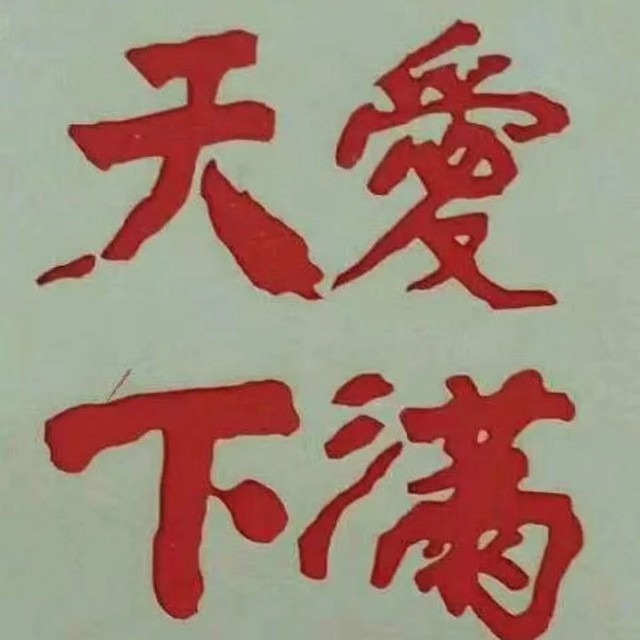 愛滿
天下